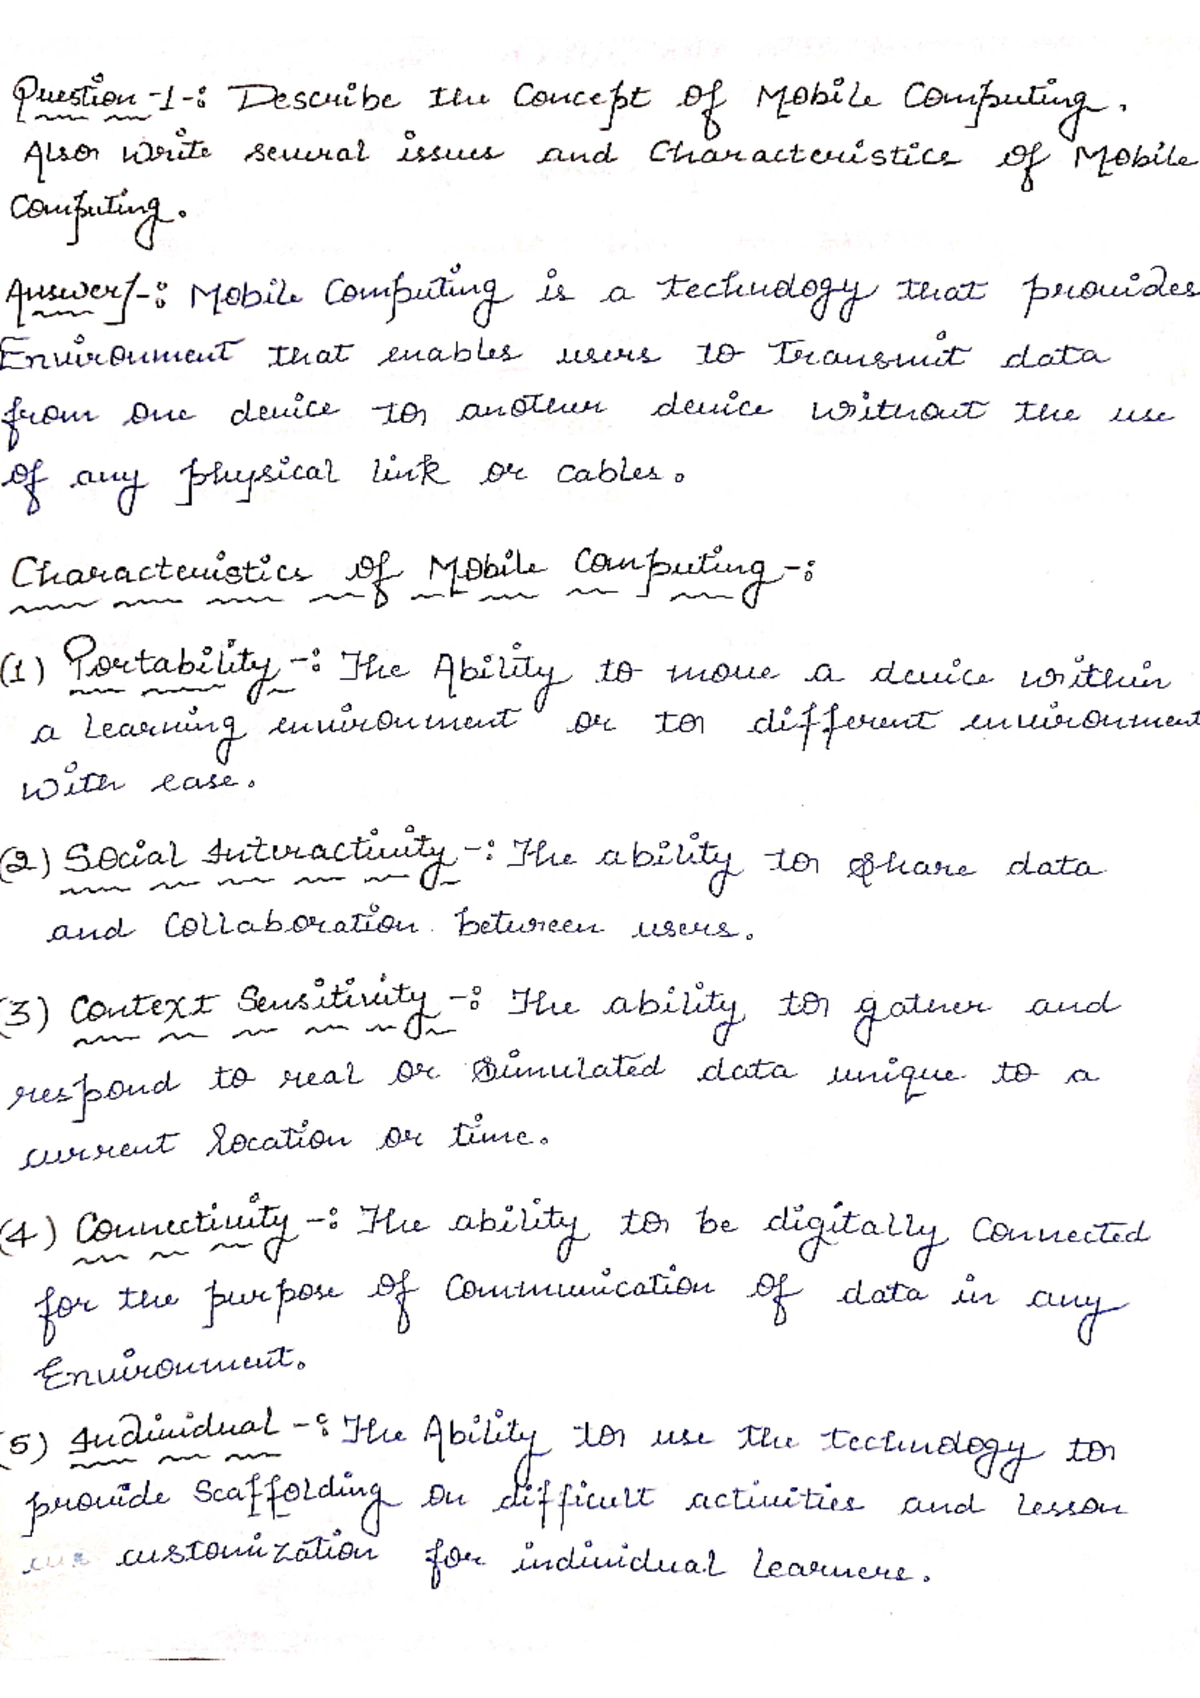 Question -1-: Describe the Concept of Mobile Computing.
Also write several issues and Characteristics of Mobile
Computing.
Answer/-: Mobile Computing is a technology that provides
Environment that enables users to Transmit data
from one device to another device without the use
of any physical link or cables.
Characteristics of Mobile Computing -:
(1) Portability -: The Ability to move a device within
a learning environment or to different environment
with ease.
(2) Social Interactivity -: The ability to share data
and Collaboration between users.
(3) Context Sensitivity -: The ability to gather and
respond to real or simulated data unique to a
current location or time.
(4) Connectivity -: The ability to be digitally Connected
for the purpose of Communication of data in any
Environment.
(5) Individual -: The Ability to use the technology to
provide Scaffolding on difficult activities and lesson
customization for individual learners.